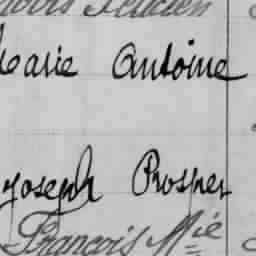 Marie Antoine
Joseph Prosper
François Mie